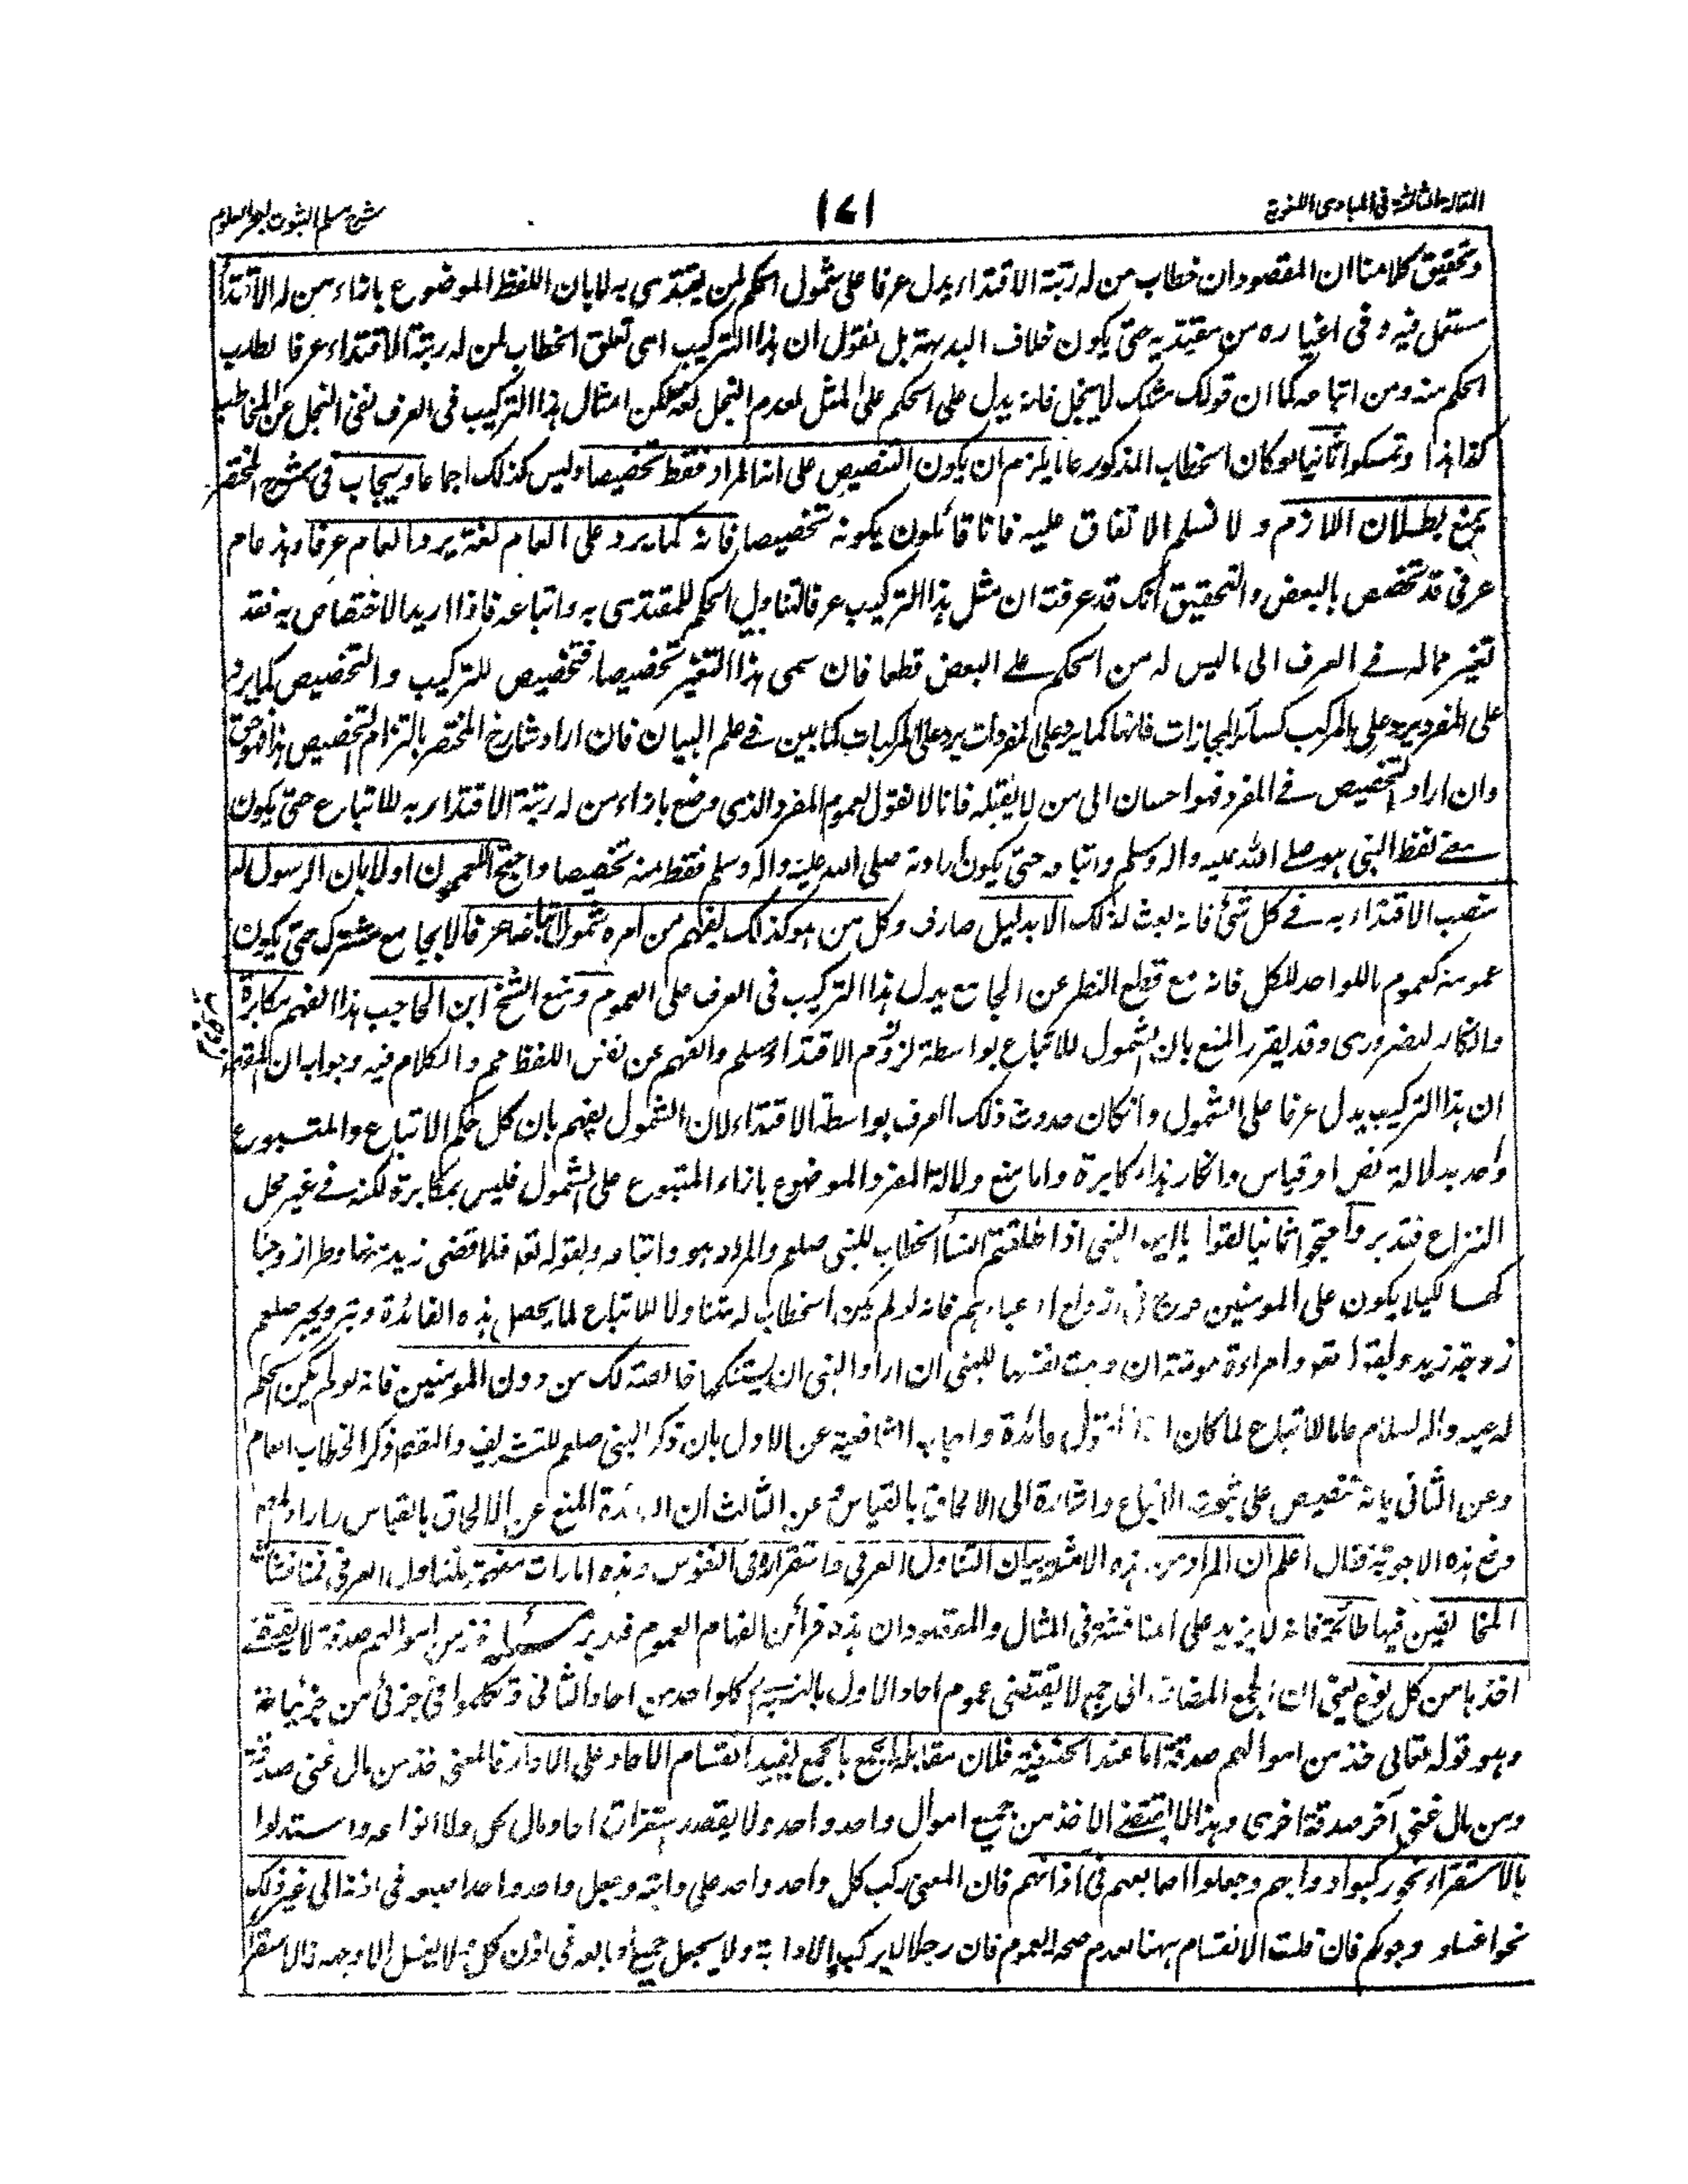 المقالة الثالثة فى المبادى اللغوية
١٧١
شرح مسلم الثبوت لبحر العلوم
وتحقيق كلامنا ان المقصود ان خطاب من له رتبة الاقتداء يدل عرفا على شمول الحكم لمن يقتدى به لا بان اللفظ الموضوع بازاء من له الاقتداء
مستعمل فيه وفى اغياره من مقتديه حتى يكون خلاف البديهة بل نقول ان هذا التركيب اى تعلق الخطاب لمن له رتبة الاقتداء عرفا لطلب
الحكم منه ومن اتباعه كما ان قولك مثلك لا يبخل فانه يدل على الحكم على المثل لعدم البخل لغة لكن امثال هذا التركيب فى العرف نفى البخل عن المخاطب
كذا هذا وتمسكوا ثانيا لو كان الخطاب المذكور عاما يلزم ان يكون التنصيص على انه المراد فقط تخصيصا وليس كذلك اجماعا وسيجاب فى شرح المختصر
يمنع بطلان اللازم ولا نسلم الاتفاق عليه فانا قائلون بكونه تخصيصا فانه كما يرد على العام لغة يرد العام عرفا وهذ عام
عرفى قد تخصص بالبعض والتحقيق انك قد عرفت ان مثل هذا التركيب عرفا لتناول الحكم للمقتدى به واتباعه فاذا اريد الاختصاص به فقد
تغير مما له فى العرف الى ما ليس له من الحكم على البعض قطعا فان سمى هذا التغير تخصيصا فتخصيص للتركيب والتخصيص كما يرد
على المفرد يرد على المركب كسائر المجازات فانها كما يرد على المفردات يرد على المركبات كما بين فى علم البيان فان اراد شارح المختصر بالتزام التخصيص هذا فهو حق
وان اراد التخصيص فى المفرد فهو احسان الى من لا يقبله فانا لا نقول بعموم المفرد الذى وضع بازاء من له رتبة الاقتداء به للاتباع حتى يكون
معنى لفظ النبى هو صلى الله عليه واله وسلم واتباعه حتى يكون ارادته صلى الله عليه واله وسلم فقط منه تخصيصا واحتج المعممون اولا بان الرسول له
منصب الاقتداء به فى كل شئ فانه بعث لذلك الا بدليل صارف وكل من هو كذلك يفهم من امره شمول اتباعه عرفا لا بجامع مشترك حتى يكون
عمومه كعموم ما للواحد للكل فانه مع قطع النظر عن الجامع يدل هذا التركيب فى العرف على العموم ومنع الشيخ ابن الحاجب هذا الفهم مكابرة
وانكار لضرورى وقد يقرر المنع بان الشمول للاتباع بواسطة لزوم الاقتداء مسلم والفهم عن نفس اللفظ مم والكلام فيه وجوابه ان المقصود
ان هذا التركيب يدل عرفا على الشمول وان كان حدوث ذلك العرف بواسطة الاقتداء لان الشمول يفهم بان كل حكم الاتباع والمتبوع
واحد بدلالة نص او قياس وانكار هذا مكابرة واما منع دلالة المفرد الموضوع بازاء المتبوع على الشمول فليس بمكابرة لكنه فى غير محل
النزاع فتدبر واحتجوا ثانيا لقوا يا ايها النبى اذا طلقتم النسا الخطاب للنبى صلعم والمراد هو واتباعه ولقوله تعم فلما قضى زيد منها وطرا زوجنا
كها لكيلا يكون على المومنين حرج فى ازواج ادعياءهم فانه لو لم يكن الخطاب له متناولا للاتباع لما يحصل هذه الفائدة وتزويجه صلعم
زوجة زيد ولقوله تعم وامراءة مومنة ان وهبت نفسها للنبى ان اراد النبى ان يستنكحها خالصة لك من دون المومنين فانه لو لم يكن الحكم
له عليه واله السلام عاما للاتباع لما كان لهذا القول فائدة واجاب الشافعية عن الاول بان ذكر النبى صلعم للتشريف والمقصود ذكر الخطاب العام
وعن الثانى بانه تنصيص على ثبوت الاتباع واشارة الى الالحاق بالقياس وعن الثالث ان الفائدة المنع عن الالحاق بالقياس واراد المصنف
دفع هذه الاجوبة فقال اعلم ان المراد من هذه الامثلة بيان التناول العرفى ما ستقر اوفى النفوس وهذه امارات مفهمة للتناول العرفى فمناقشات
المخالفين فيها طائحة فانه لا يزيد على المناقشة فى المثال والمقصود ان هذه قرائن انفهام العموم فتدبر مسئلة خذ من اموالهم صدقة لا يقتضى
اخذها من كل نوع يعنى ان الجمع المضاف الى جمع لا يقتضى عموم احاد الاول بالنسبة الى كل واحد من احاد الثانى وتكلموا فى جزئى من جزئياته
وهو قوله تعالى خذ من اموالهم صدقة اما عند الحنفية فلان مقابلة الجمع بالجمع يفيد انقسام الاحاد على الاحاد فالمعنى خذ من مال غنى صدقة
ومن مال غنى آخر صدقة اخرى وهذا لا يقتضى الاخذ من جميع اموال واحد واحد ولا يقصد استغراق احاد مال كل ولا انواعه واستدلوا
بالاستقراء نحو ركبوا دوابهم وجعلوا اصابعهم فى آذانهم فان المعنى ركب كل واحد واحد على دابته وجعل واحد واحد اصبعه فى اذنه الى غير ذلك
نحو اغسلو وجوهكم فان قلت الانقسام ههنا لعدم صحة العموم فان رجلا لا يركب الا دابة ولا يجعل جميع اصابعه فى اذن كل ولا يغسل الا وجهه فالاستقرا